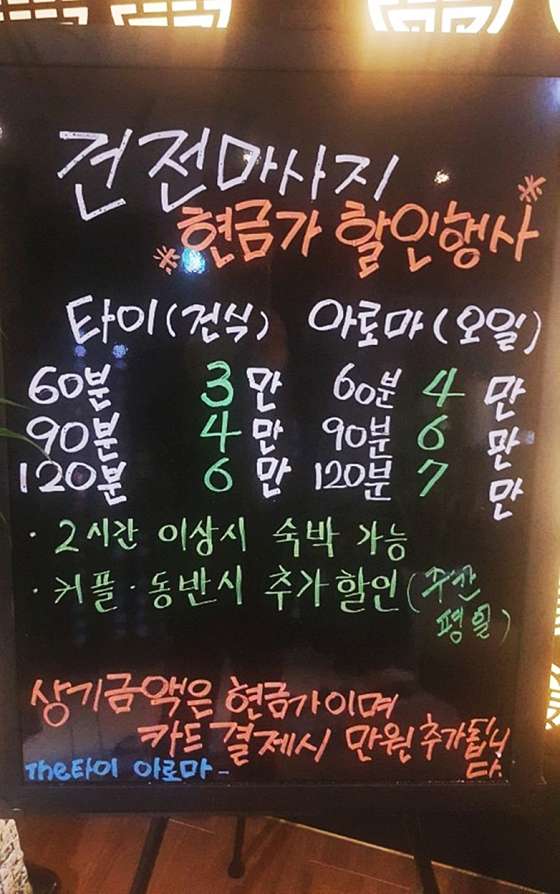 건전마사지
*현금가 할인행사*
타이(건식) 아로마(오일)
60분 3만 60분 4만
90분 4만 90분 6만
120분 6만 120분 7만
· 2시간 이상시 숙박 가능
· 커플·동반시 추가할인(주간 평일)
상기금액은 현금가이며
카드결제시 만원추가됩니다
The타이 아로마-